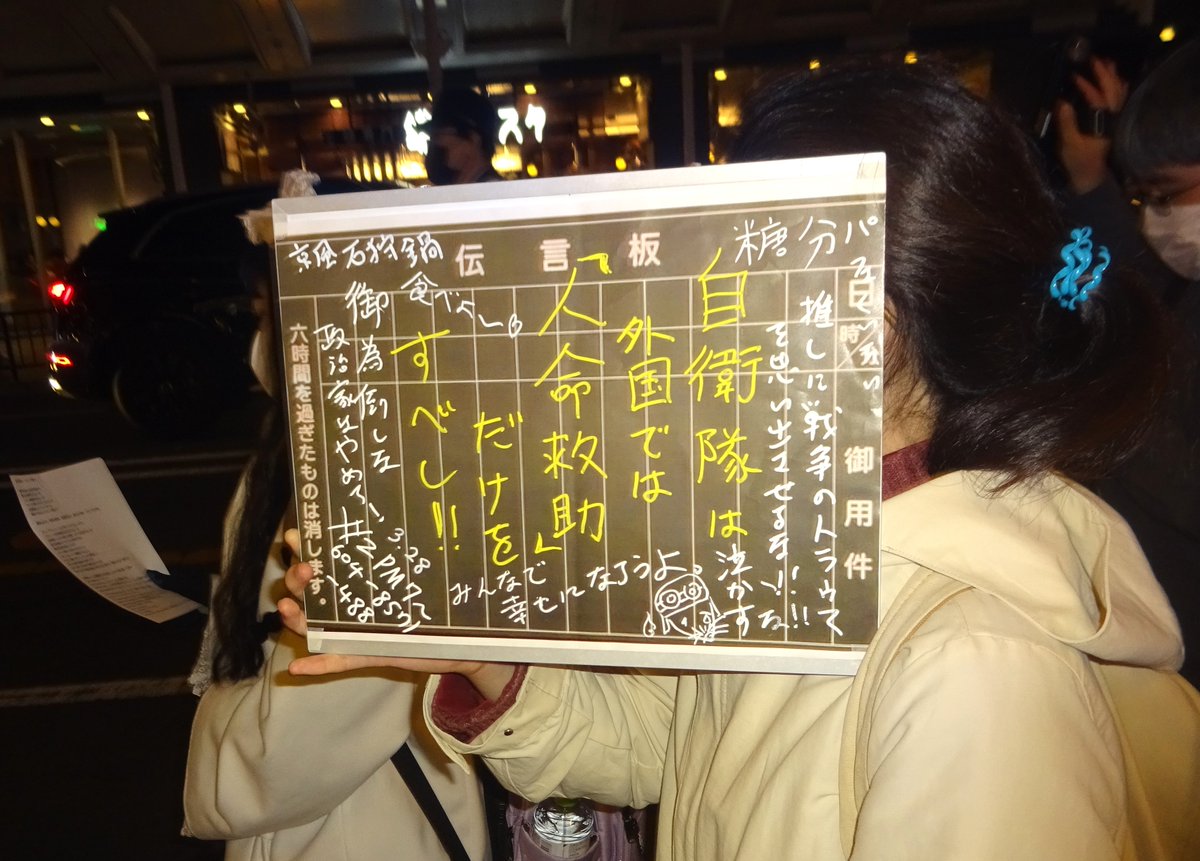 伝言板
日時
御用件
六時間を過ぎたものは消します。
糖分
推しに戦争のトラウマ
を思い出させるな!!
泣かすな!!
自衛隊は
外国では
「人命救助」
だけを
すべし!!
みんなで
幸せになろうよ
京風石狩鍋
食べよし
御為倒し
政治家はやめろ!
スク